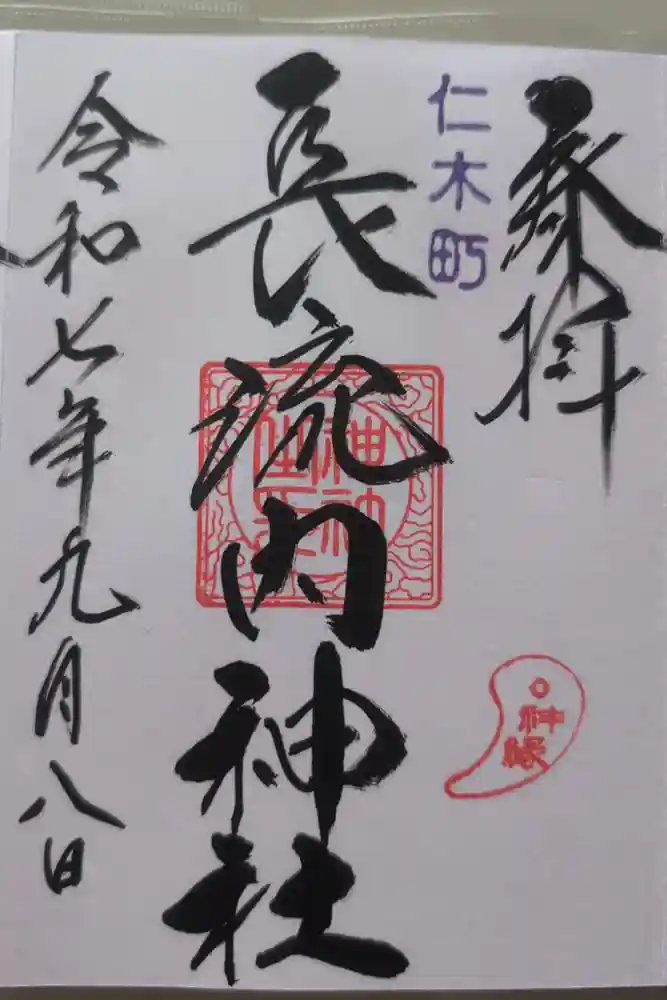 奉拝
仁木町
長流内神社
神縁
令和七年九月八日